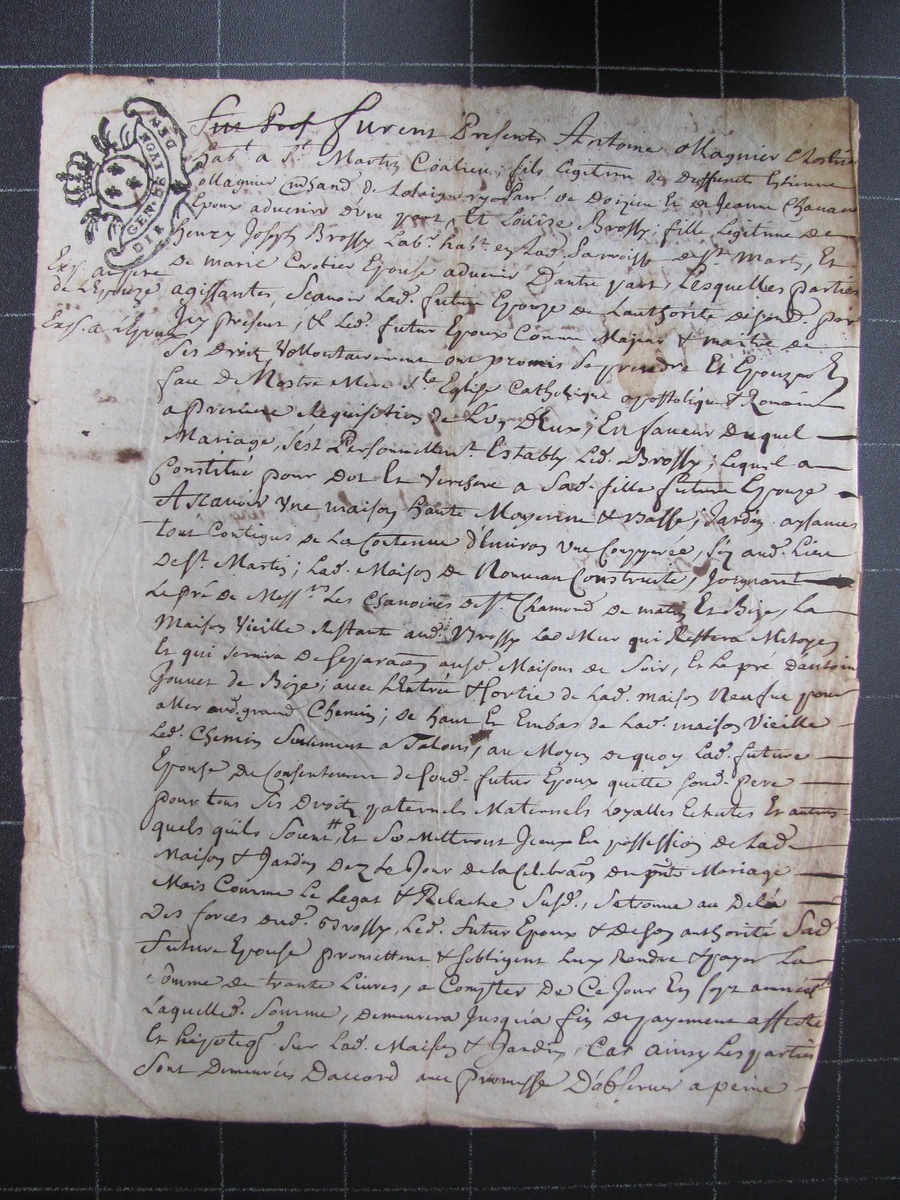 GEN. DE LYON
Furent Presents Antoine Magnier
hab.t a S.t Martin Coalieu; fils legitime de deffunts Estienne
Magnier de Par. de Doizieu Et de Jeanne Chavan
Epoux advenir d'une part, Et Louise Brossy; fille Legitime de
henry Joseph Brossy Lab.r hab.t en Lad. Parroisse de S.t Martin, Et
de marie Crotier Epouse advenir D'autre part, Lesquelles parties
Exp. au pere
de L'Epouze
agissantes, Scavoir Lad. future Epouze de Lauthorité de sond. pere
Exp. a l'Epoux
Icy présent, & Led. futur Epoux Comme Majeur & maitre de
Ses Droitz Vollontairement ont promis Se prendre Et Epouzer En
face de Nostre Mere S.te Eglise Catholique apostolique & Romaine
a premiere Requisition de L'un D'Eux; En faveur duquel
Mariage, S'est Personnellem.t Estably Led. Brossy; Lequel a
Constitué pour Dot Et Verchere a Sad. fille future Epouze
Ascavoir Une maison haute Moyenne & Basse; Jardin aysances
tout Contigus de La Contenue d'Environ Une Coupperée, Siz aud. Lieu
de S.t Martin; Lad. Maison de Nouveau Construite, Joignant
Le pré de Mess.rs Les Chanoines de S.t Chamond de matin Et Bize, La
Maison Vieille Restante aud. Brossy Le Mur qui Restera Mitoyen
Et qui servira de separaon ausd. Maisons de Soir, Et Le pré d'antoine
Jouvet de Bize; avec L'Entrée & sortie de Lad. maison Neufve pour
aller aud. grand Chemin; de haut Et Embas de Lad. maison Vieille
Led. Chemin Seulement a Talons, au Moyen de quoy Lad. future
Epouse du Consentement de Sond. futur Epoux quitte Sond. Pere
pour tous Ses Droitz paternels Maternels Loyalles Echutes Et autres
quels qu'ils Soient, Et Se Mettront Iceux En possession de Lad.
Maison & Jardin Dez Le Jour de la Celebraon du pnt Mariage
Mais Comme Le Legat & Relache Susd., Se trouve au Dela
des forces dud. Brossy, Led. futur Epoux & de Son authorité Sad.
future Epouse promettent & s'obligent Luy Rendre & payer La
Somme de trante Livres, a Compter de Ce Jour En sept années
Laquelle Somme, demeurera Jusqu'a fin de payement affectée
Et hipoteqé Sur Lad. Maison & Jardin, Car ainsy Les parties
Sont Demeurées D'accord avec Promesse D'observer a peine